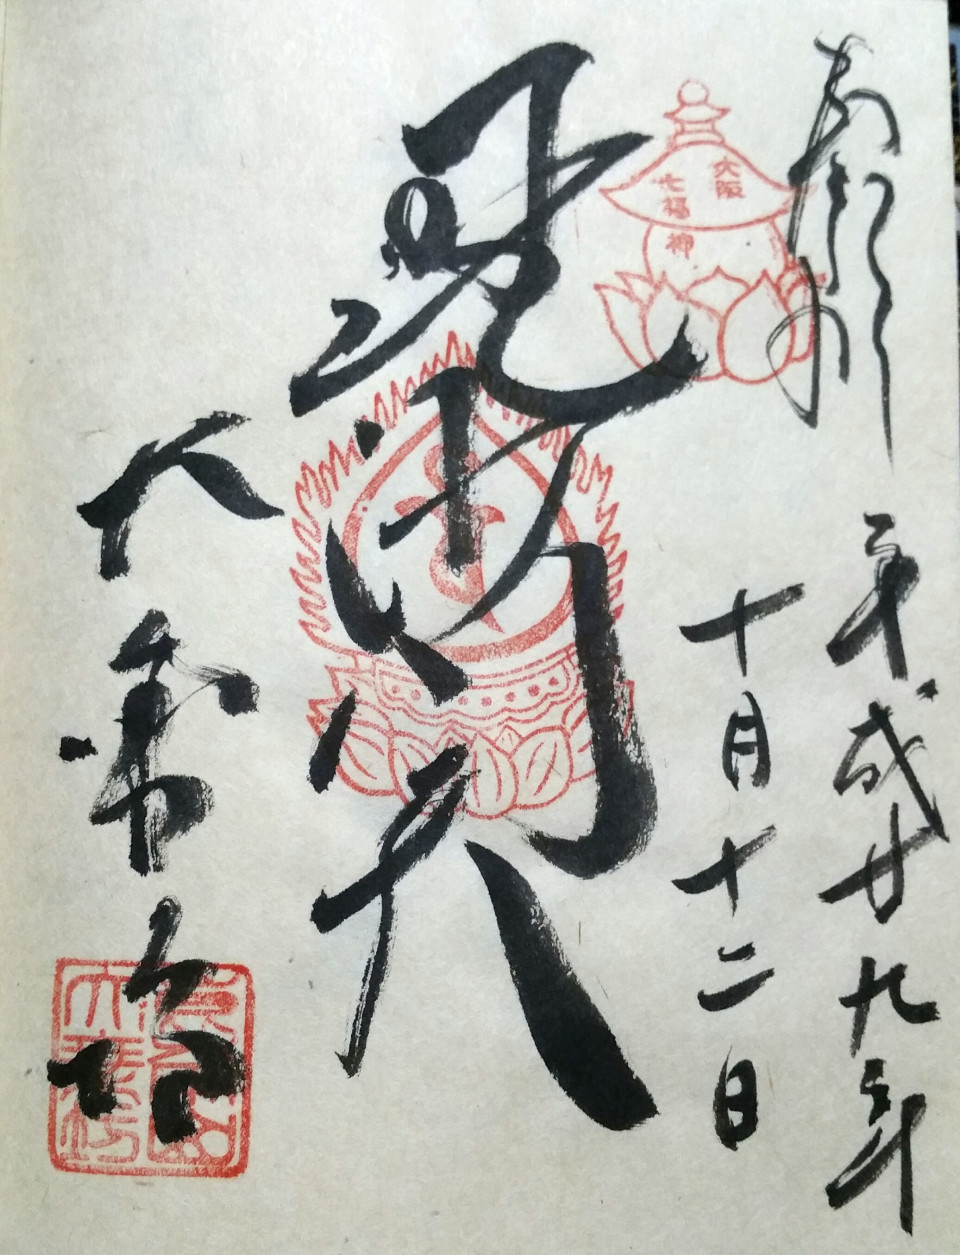 奉拝
大阪
七福神
平成廿九年
十月十二日
毘沙門天
大乗坊